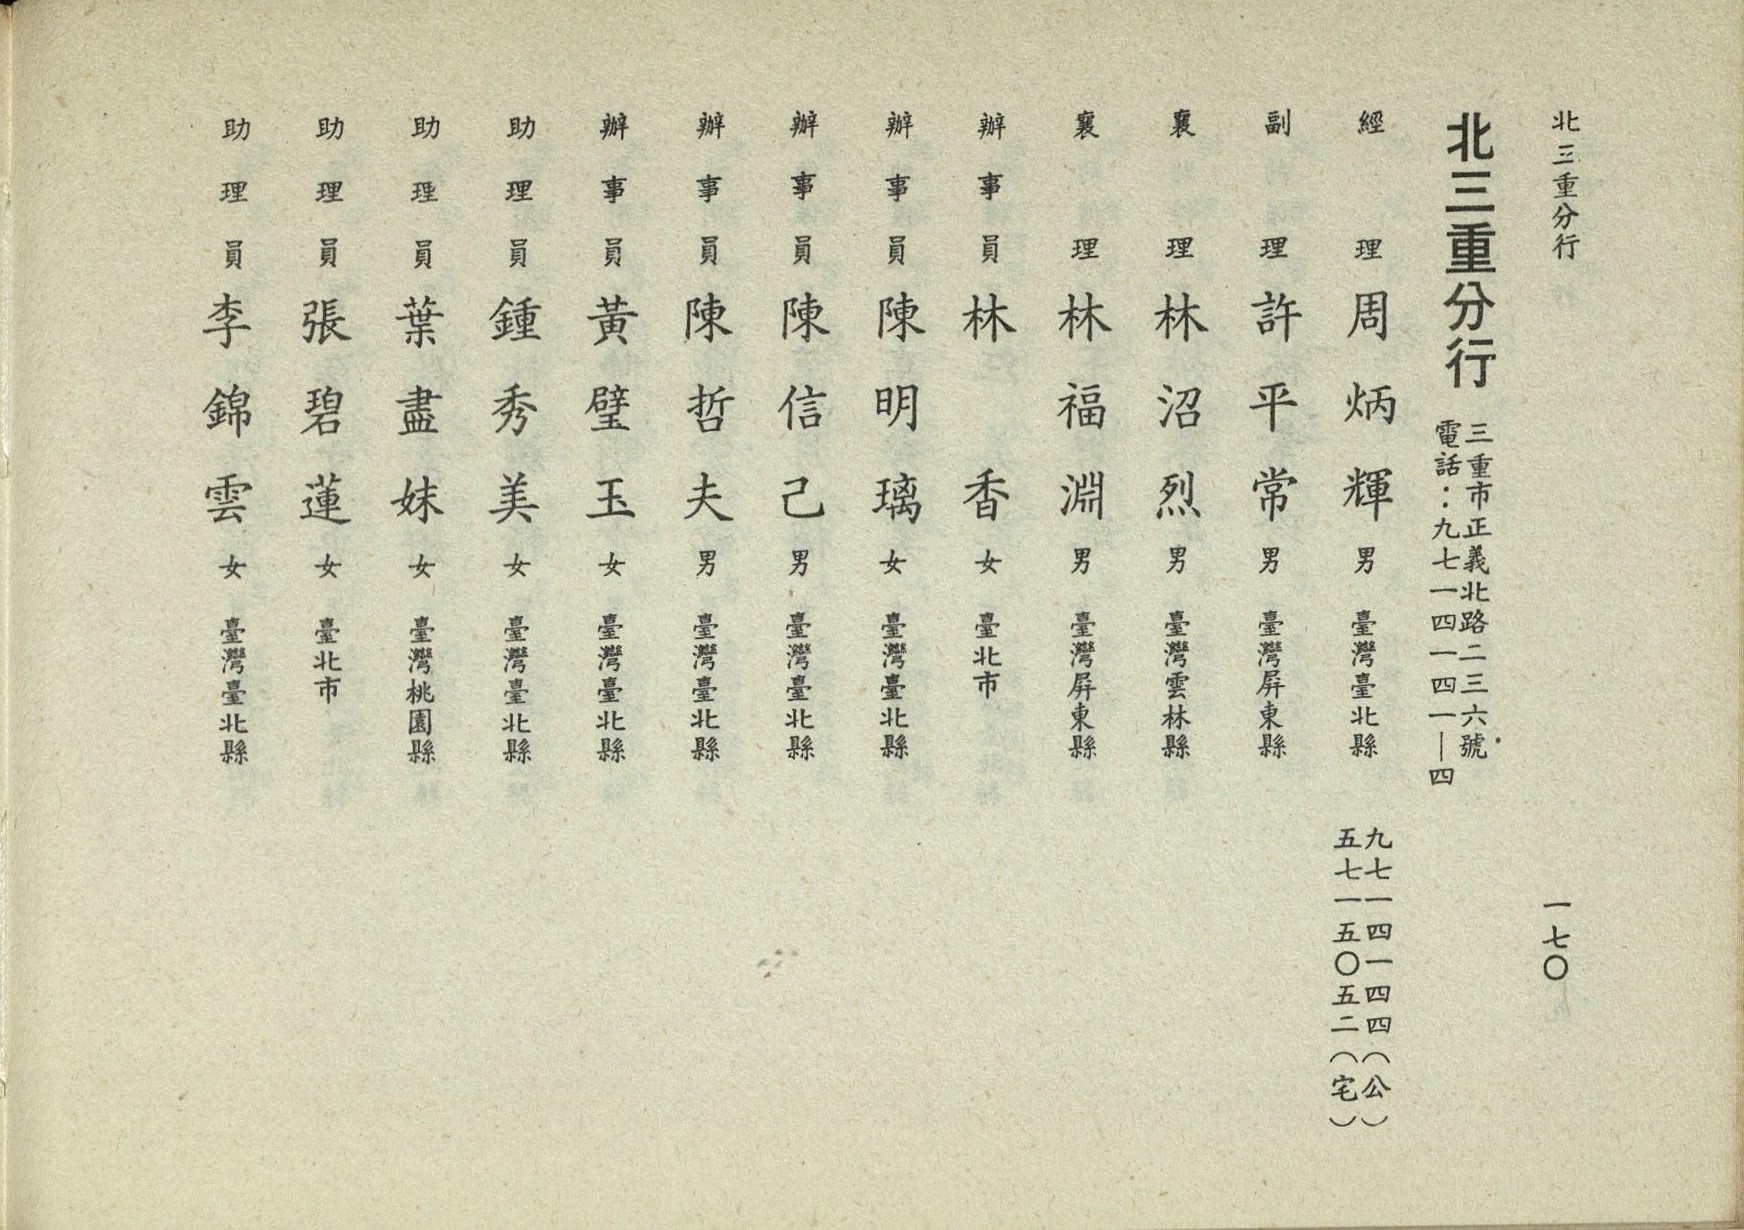 北三重分行
一七〇
北三重分行
三重市正義北路二三六號
電話：九七一四一四一—四
經理 周炳輝 男 臺灣臺北縣 九七一四一四四（公）
五七一五〇五二（宅）
副理 許平常 男 臺灣屏東縣
襄理 林沼烈 男 臺灣雲林縣
襄理 林福淵 男 臺灣屏東縣
辦事員 林香 女 臺北市
辦事員 陳明璃 女 臺灣臺北縣
辦事員 陳信己 男 臺灣臺北縣
辦事員 陳哲夫 男 臺灣臺北縣
辦事員 黃璧玉 女 臺灣臺北縣
助理員 鍾秀美 女 臺灣臺北縣
助理員 葉盡妹 女 臺灣桃園縣
助理員 張碧蓮 女 臺北市
助理員 李錦雲 女 臺灣臺北縣